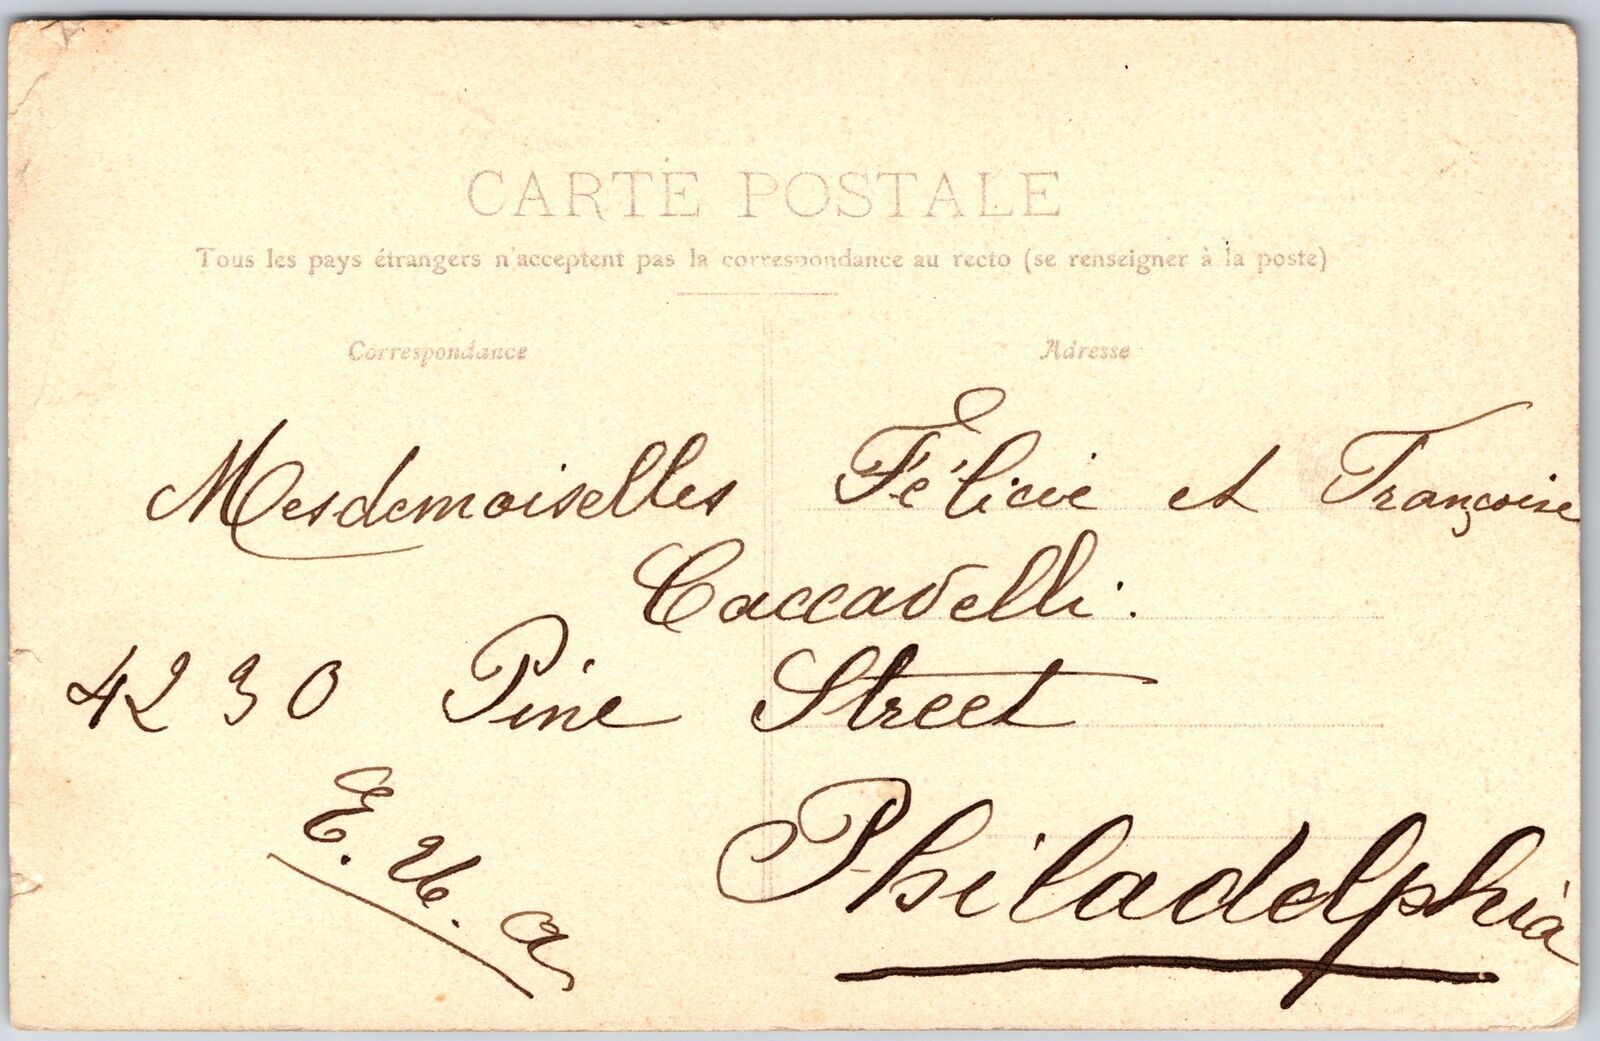 CARTE POSTALE
Tous les pays étrangers n'acceptent pas la correspondance au recto (se renseigner à la poste)
Correspondance
Adresse
Mesdemoiselles Félicie et Françoise
Caccavelli.
4230 Pine Street
Philadelphia
E. U. A